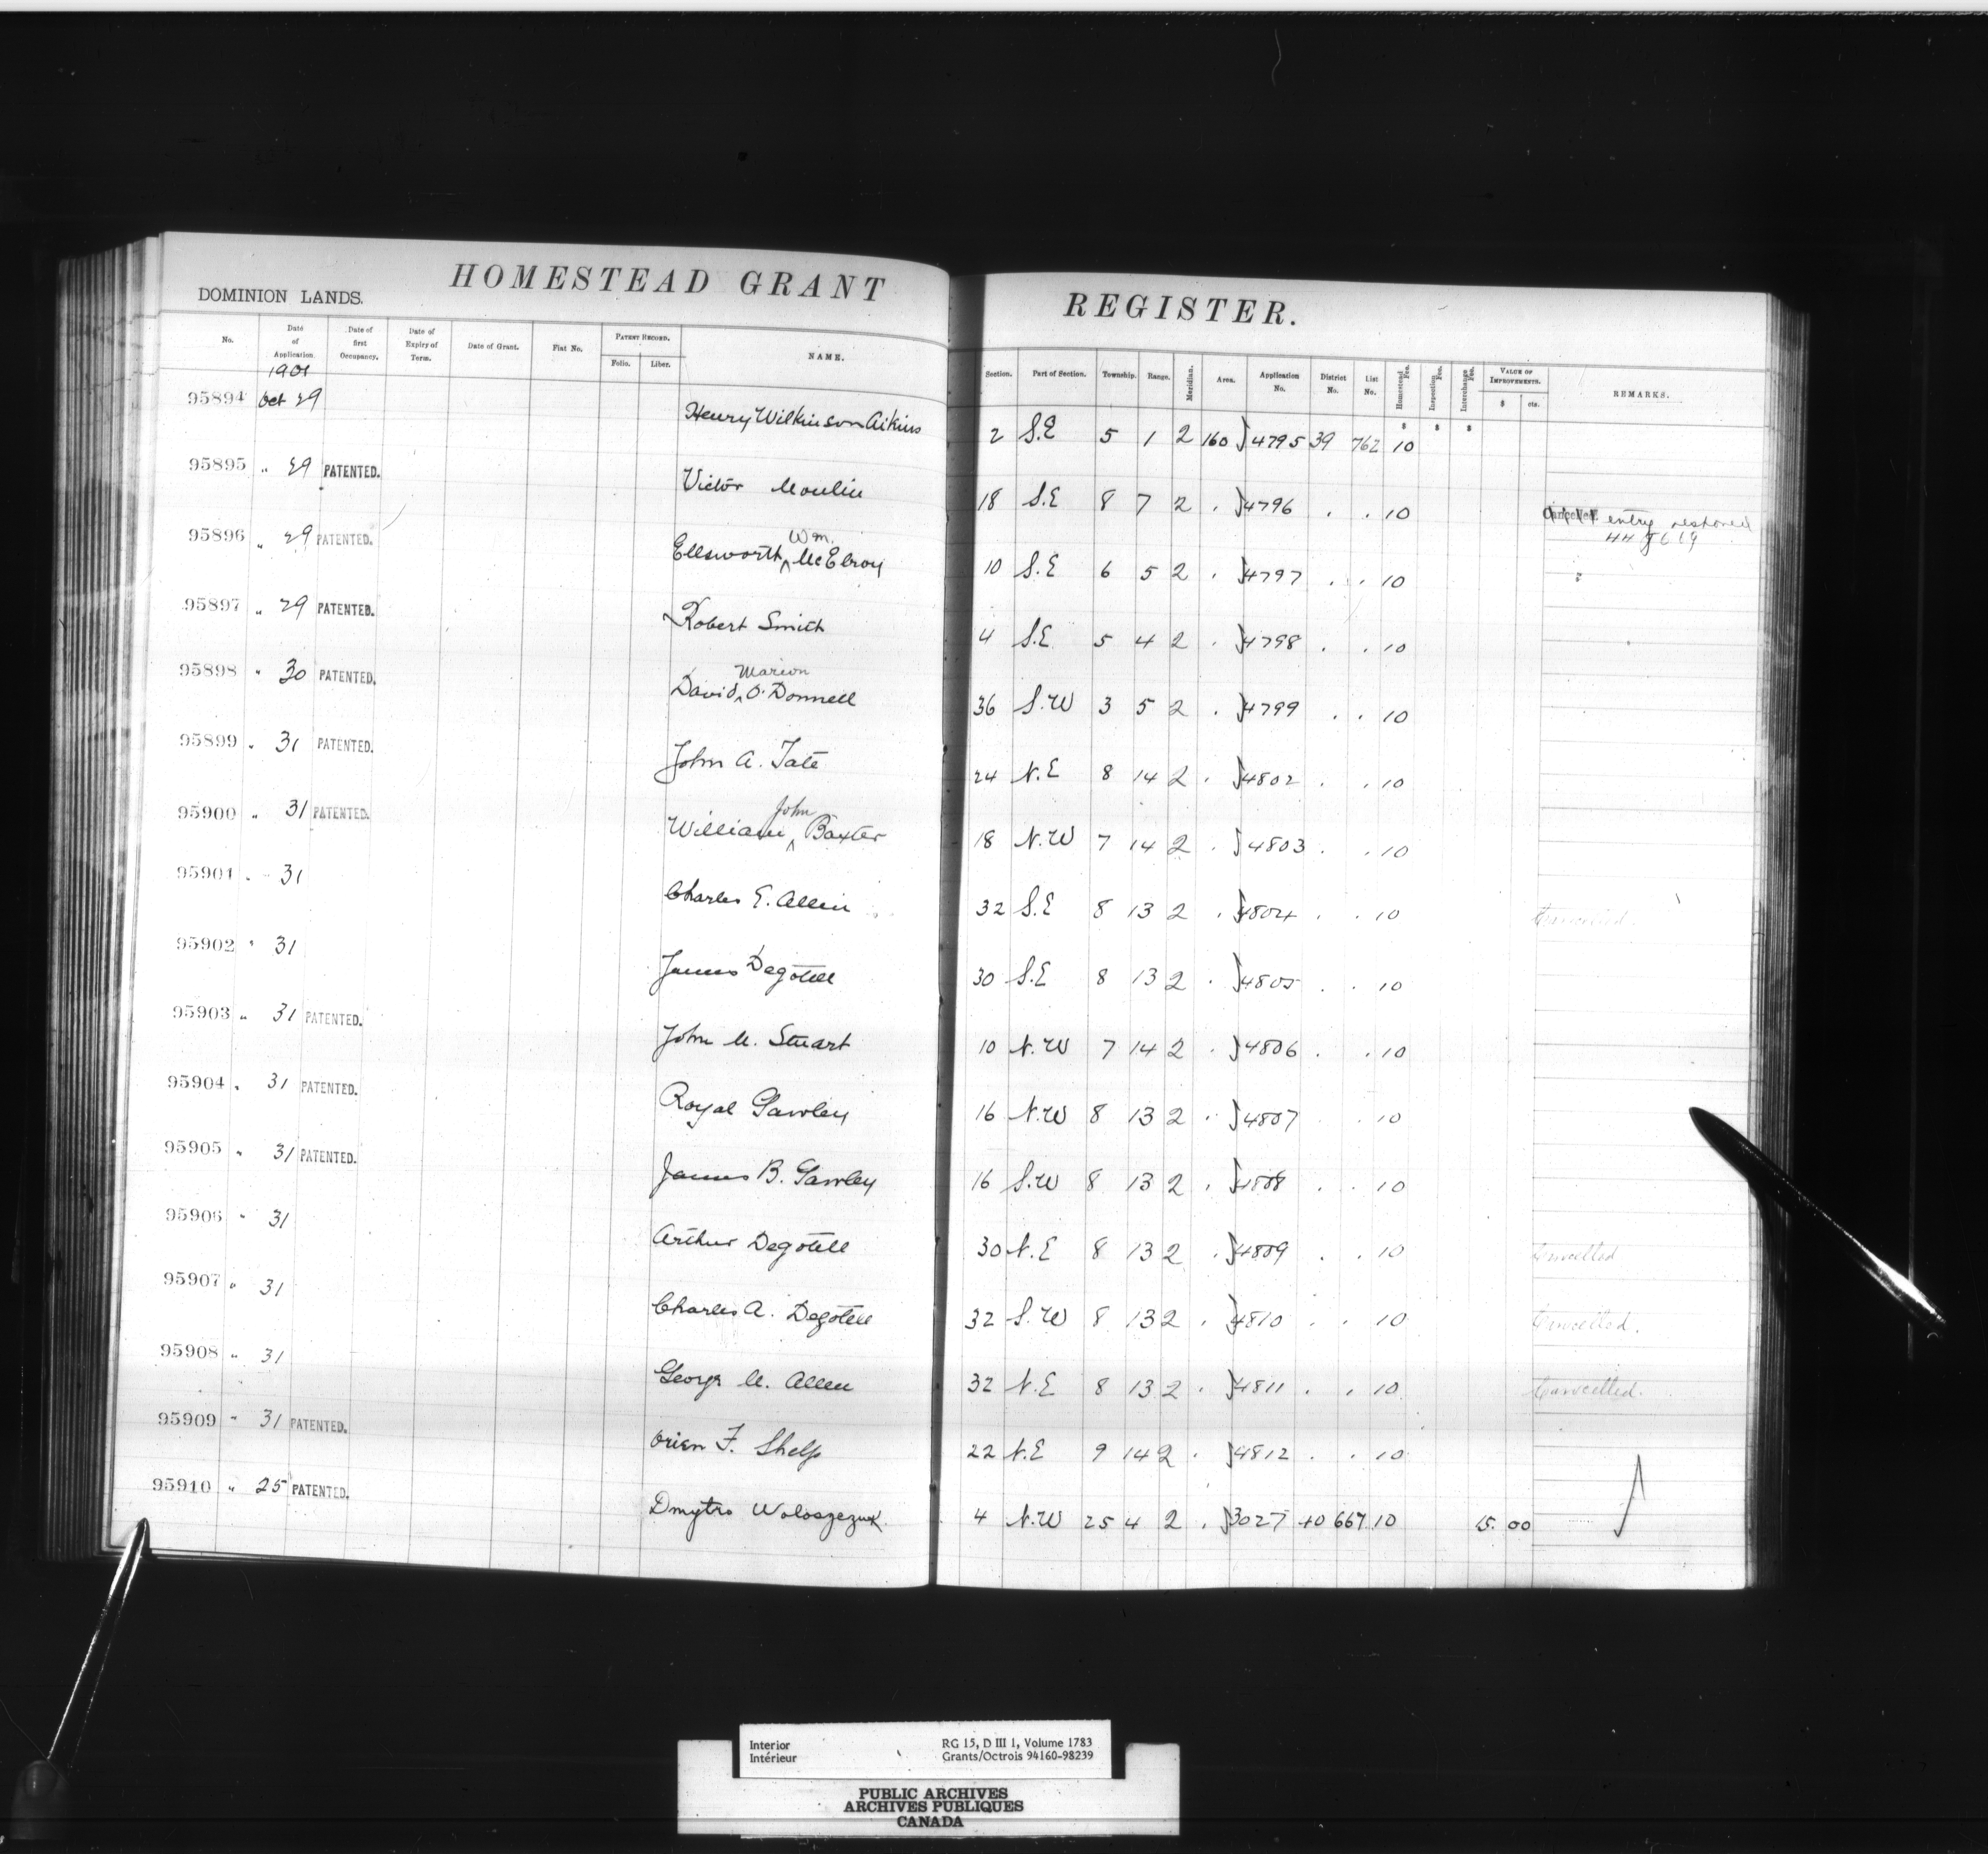 DOMINION LANDS. HOMESTEAD GRANT REGISTER.
No. Date of Application. Date of first Occupancy. Date of Expiry of Term. Date of Grant. Fiat No. PATENT RECORD. Folio. Liber. NAME. Section. Part of Section. Township. Range. Meridian. Area. Application No. District No. List No. Homestead Fee. Inspection Fee. Interchange Fee. VALUE OF IMPROVEMENTS. $ cts. REMARKS.
1901
95894 Oct 29 Henry Wilkinson Aikins 2 S.E 5 1 2 160 4795 39 762 10
95895 " 29 PATENTED. Victor Moulin 18 S.E 8 7 2 . 4796 . . 10 Cancelled entry restored
Wm.
95896 " 29 PATENTED. Ellsworth ^ McElroy 10 S.E 6 5 2 . 4797 . . 10 "
95897 " 29 PATENTED. Robert Smith 4 S.E 5 4 2 . 4798 . . 10
Marion
95898 " 30 PATENTED. David ^ O'Donnell 36 S.W 3 5 2 . 4799 . . 10
95899 " 31 PATENTED. John A. Tate 24 N.E 8 14 2 . 4802 . . 10
John
95900 " 31 PATENTED. William ^ Baxter 18 N.W 7 14 2 . 4803 . . 10
95901 " 31 Charles E. Allen 32 S.E 8 13 2 . 4804 . . 10 Cancelled.
95902 " 31 James Degotell 30 S.E 8 13 2 . 4805 . . 10
95903 " 31 PATENTED. John M. Stuart 10 N.W 7 14 2 . 4806 . . 10
95904 " 31 PATENTED. Royal Gawley 16 N.W 8 13 2 . 4807 . . 10
95905 " 31 PATENTED. James B. Gawley 16 S.W 8 13 2 . 4808 . . 10
95906 " 31 Arthur Degotell 30 N.E 8 13 2 . 4809 . . 10 Cancelled
95907 " 31 Charles A. Degotell 32 S.W 8 13 2 . 4810 . . 10 Cancelled.
95908 " 31 George M. Allen 32 N.E 8 13 2 . 4811 . . 10 Cancelled.
95909 " 31 PATENTED. Orien F. Shelp 22 N.E 9 14 2 . 4812 . . 10
95910 " 25 PATENTED. Dmytro Woloszczuk. 4 N.W 25 4 2 . 3027 40 667 10 15. 00
Interior RG 15, D III 1, Volume 1783
Intérieur Grants/Octrois 94160-98239
PUBLIC ARCHIVES
ARCHIVES PUBLIQUES
CANADA